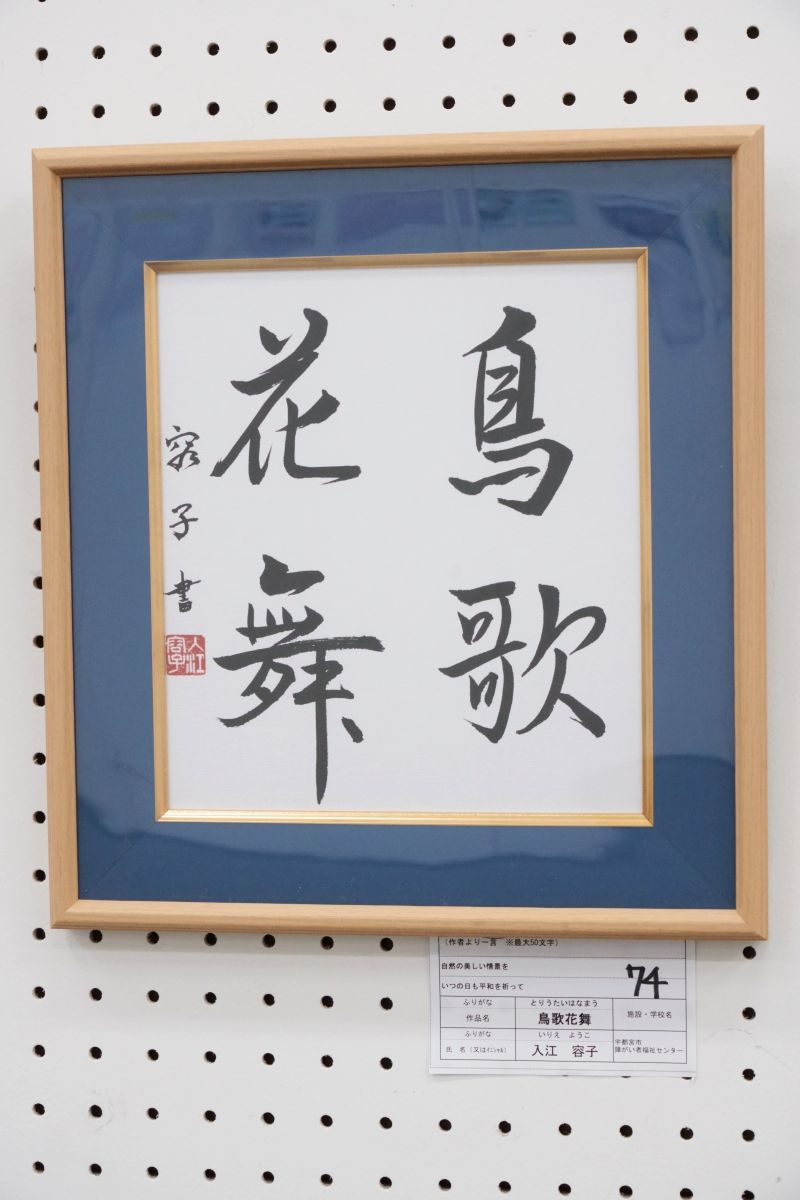 鳥歌
花舞
容子書
入江
容子
(作者より一言 ※最大50文字)
自然の美しい情景を
いつの日も平和を祈って
74
ふりがな とりうたいはなまう
作品名 鳥歌花舞 施設・学校名
ふりがな いりえ ようこ
氏 名 (又はイニシャル) 入江 容子 宇都宮市
障がい者福祉センター